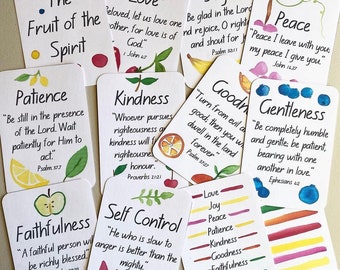 The
Fruit of the
Spirit
Love
Beloved, let us love one
another, for love is of
God."
John 4:7
Be glad in the
Lord and
rejoice, O right
and shout for
Psalm 32:11
Peace
Peace I leave with you;
my peace I give you."
John 14:27
Patience
"Be still in the presence
of the Lord. Wait
patiently for Him to
act."
Psalm 37:7
Kindness
"Whoever pursues
righteousness a
kindness
righteousness and
honour."
Proverbs 21:21
Goodn
"Turn from evil a
good; then you w
dwell in the land
forever"
Psalm
Gentleness
"Be completely humble
and gentle; be patient,
bearing with one
another in love."
Ephesians 4:2
Faithfulness
"A faithful person wi
be richly blessed,
Self Control
"He who is slow to
anger is better than the
mighty,
Love
Joy
Peace
Patience
Kindness
Goodness
Faithfulness